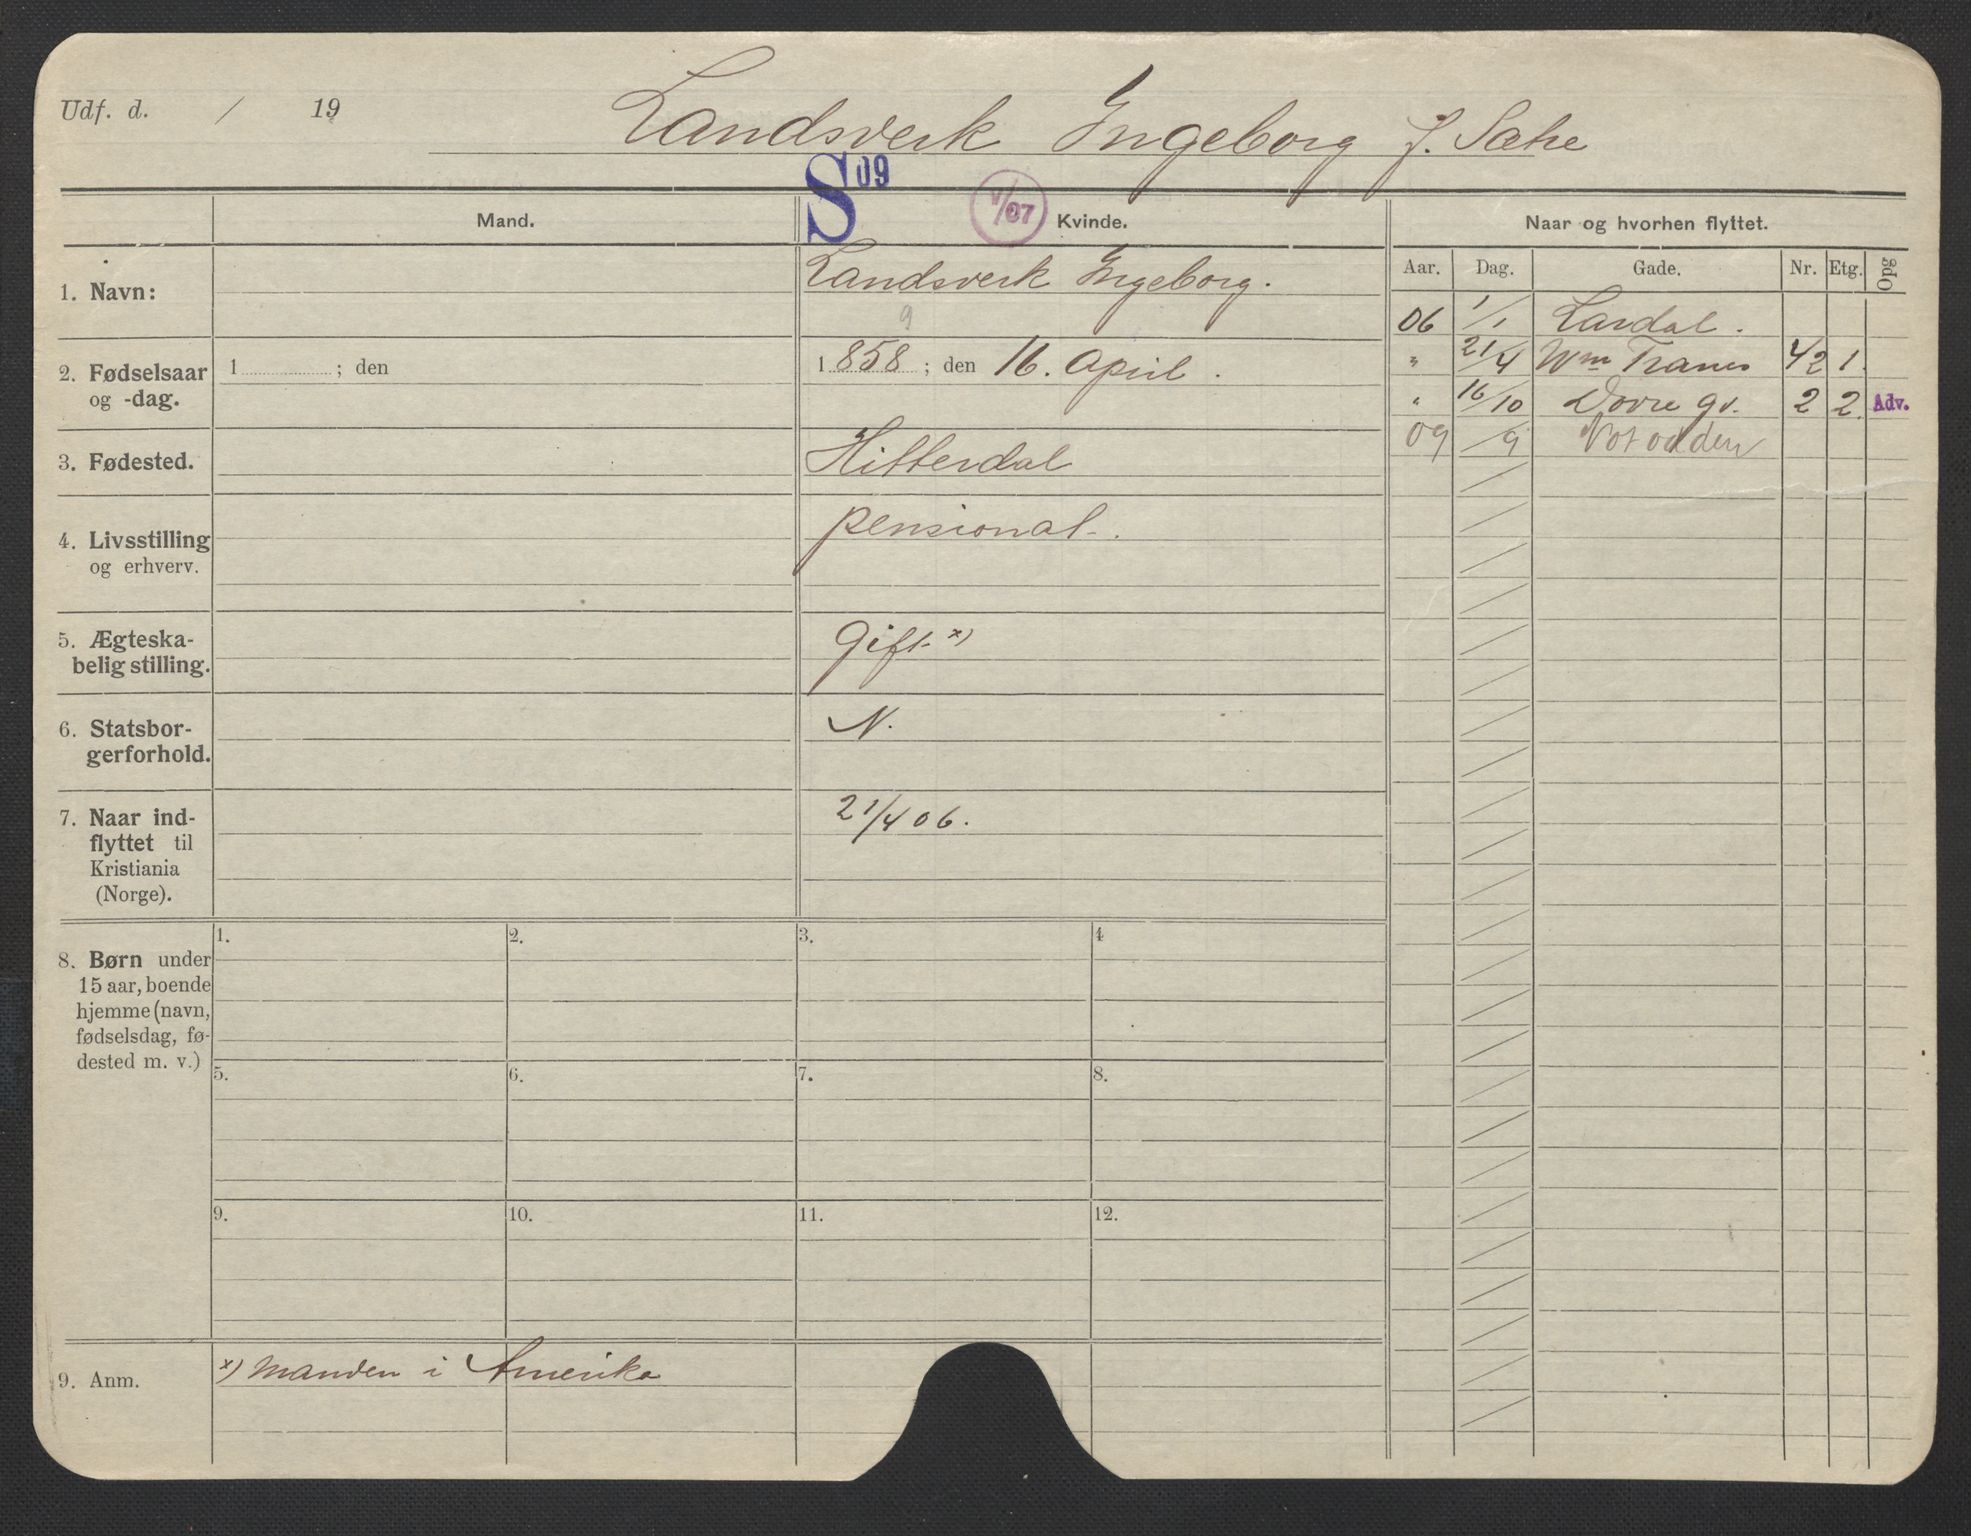 Udf. d. / 19
Landsverk Ingeborg f. Sætre
S 09
V/07
Mand.
Kvinde.
Naar og hvorhen flyttet.
Aar. Dag. Gade. Nr. Etg. Opg
1. Navn:
Landsverk Ingeborg.
9
2. Fødselsaar
og -dag.
1 ; den
1858 ; den 16. April.
3. Fødested.
Hitterdal
4. Livsstilling
og erhverv.
pensionat.
5. Ægteska-
belig stilling.
Gift x)
6. Statsbor-
gerforhold.
N.
7. Naar ind-
flyttet til
Kristiania
(Norge).
21/4 06.
06 1/1 Lardal.
" 21/4 Wm Tranes 42 1.
" 16/10 Dovre gd. 2 2. Adv.
09 /9 Notodden
8. Børn under
15 aar, boende
hjemme (navn,
fødselsdag, fø-
dested m. v.)
1. 2. 3. 4
5. 6. 7. 8.
9. 10. 11. 12.
9. Anm.
x) Manden i Amerika